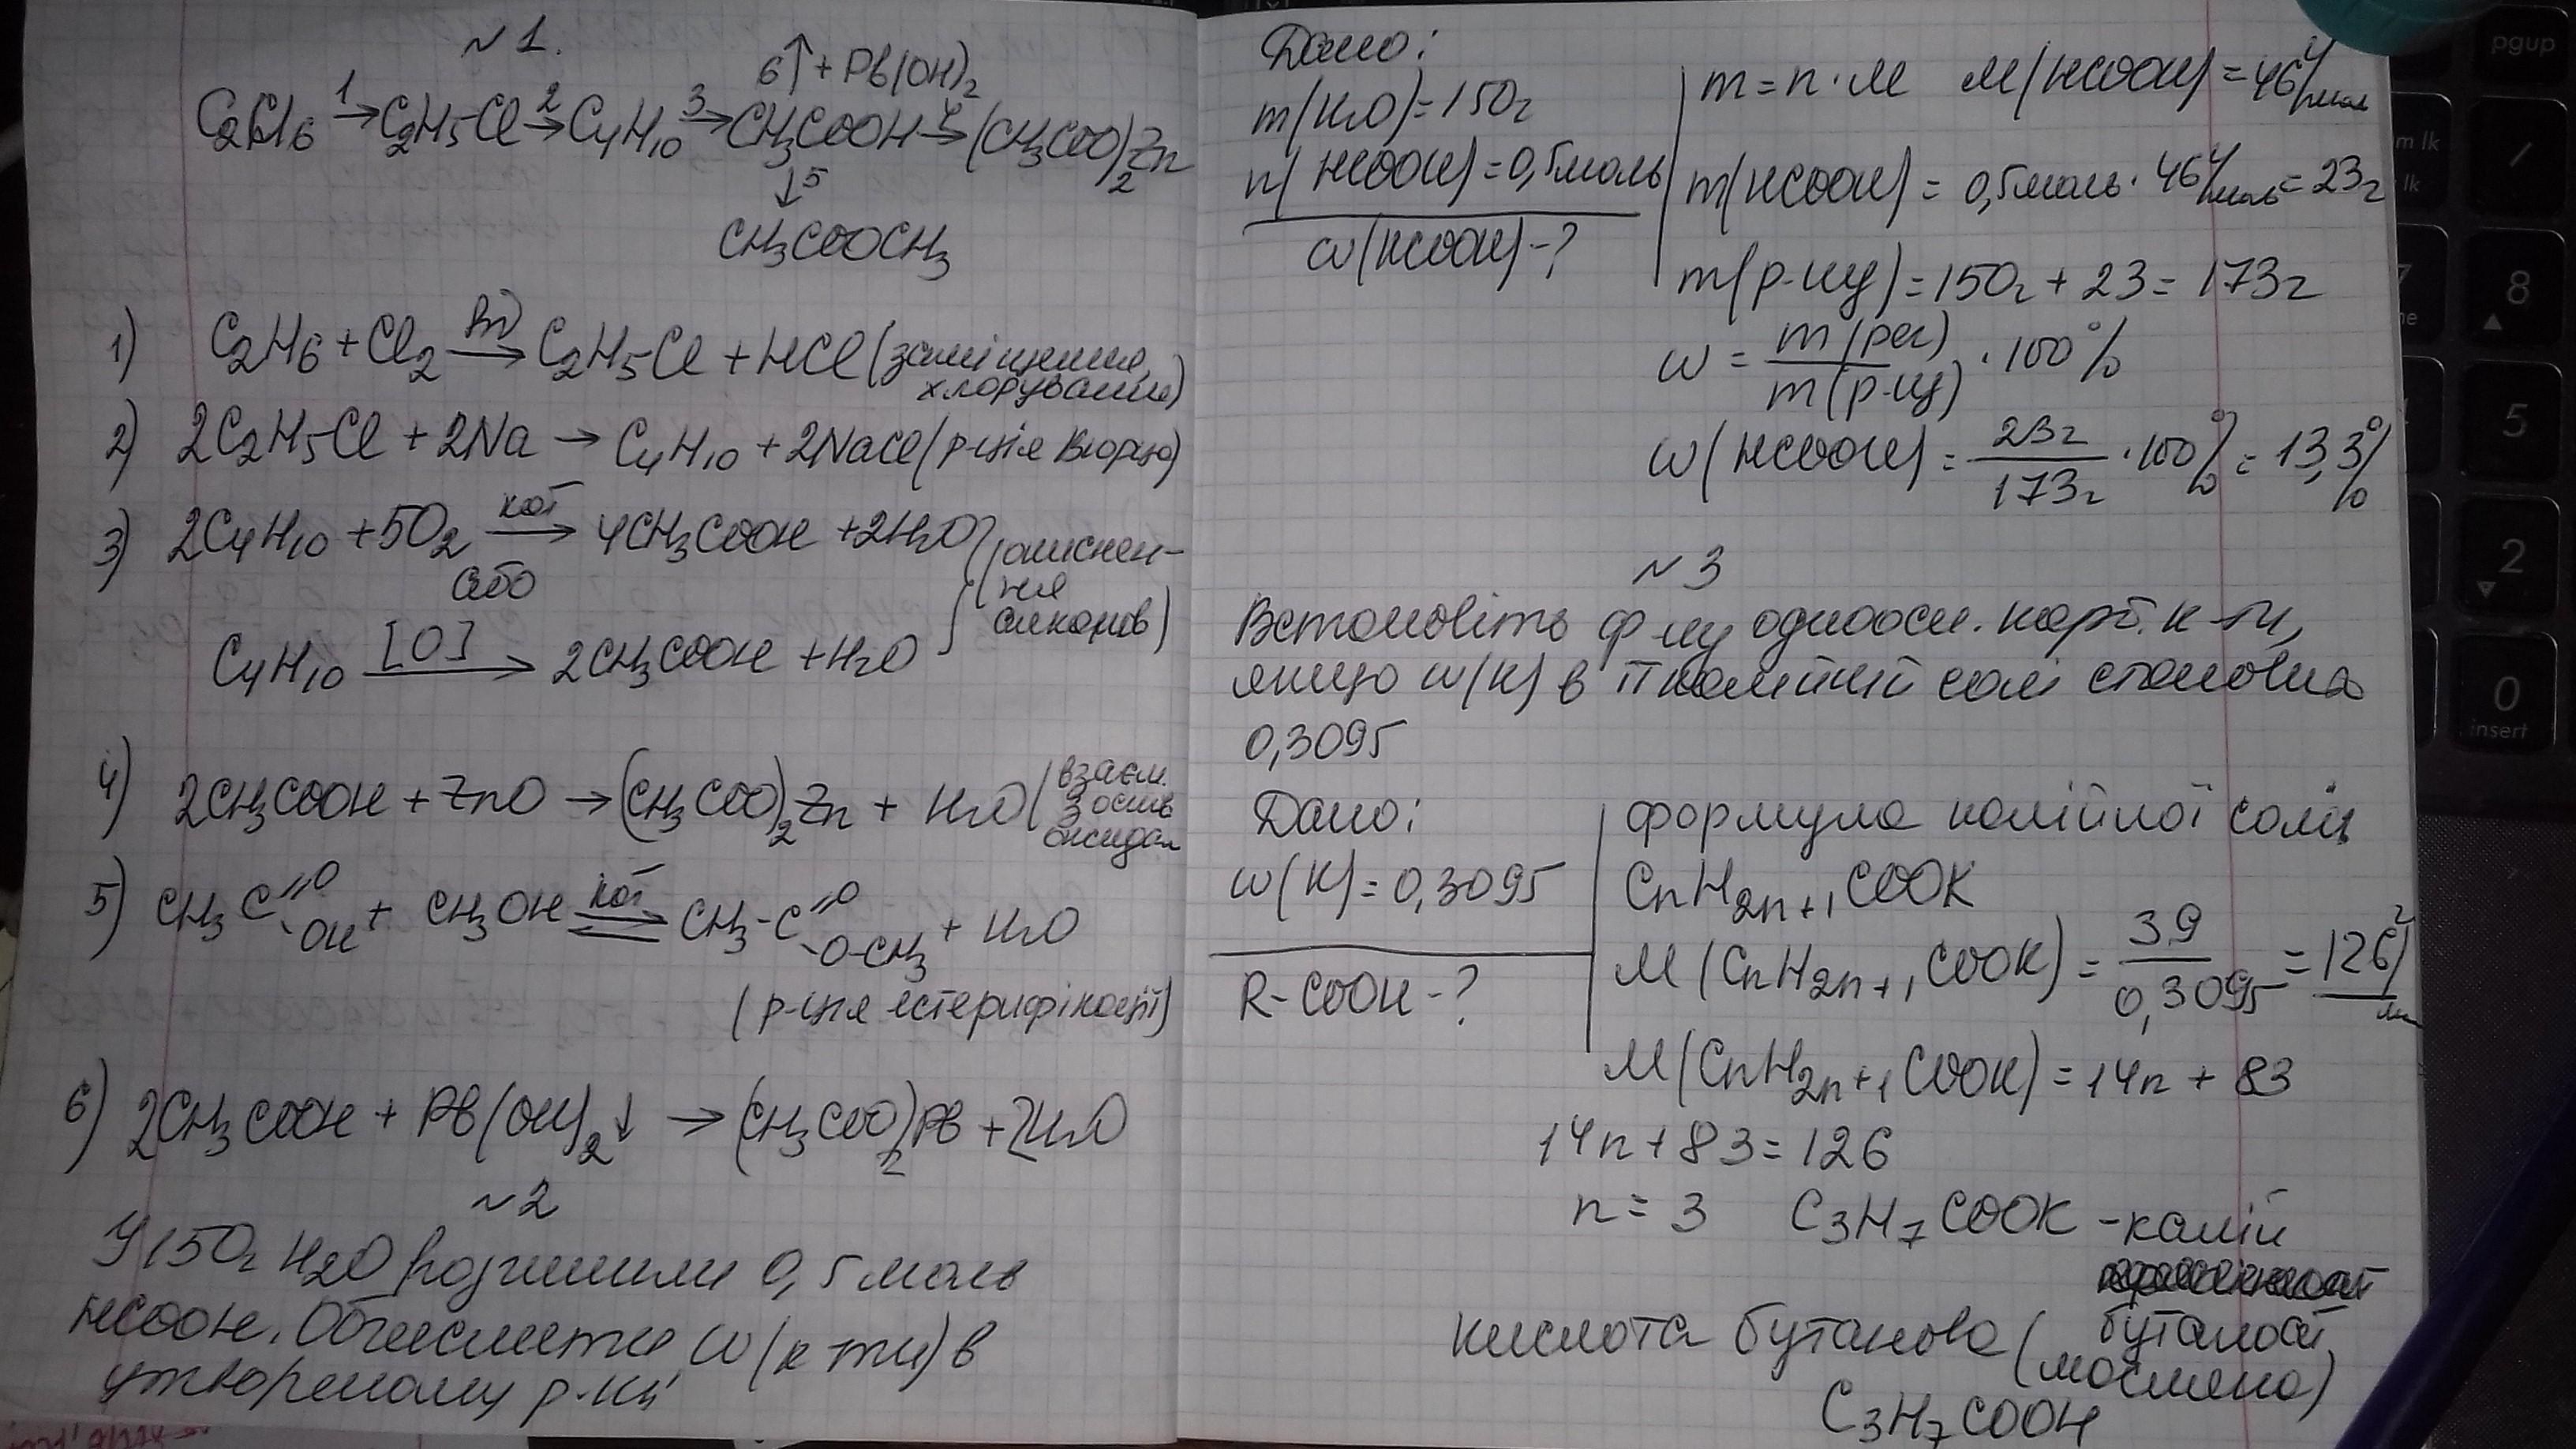 №1.
6↑+Pb(OH)2
C2H6 →1 C2H5Cl →2 C4H10 →3 CH3COOH →4 (CH3COO)2Zn
↓5
CH3COOCH3
1) C2H6 + Cl2 →hν C2H5Cl + HCl (заміщення, хлорування)
2) 2C2H5Cl + 2Na → C4H10 + 2NaCl (р-ція Вюрца)
3) 2C4H10 + 5O2 →кат 4CH3COOH + 2H2O
або
(окиснення алканов)
C4H10 →[O] 2CH3COOH + H2O
4) 2CH3COOH + ZnO → (CH3COO)2Zn + H2O (взаєм. з оснів оксидам
5) CH3C=O-OH + CH3OH ⇌кат CH3-C=O-O-CH3 + H2O
(р-ція естерифікації)
6) 2CH3COOH + Pb(OH)2↓ → (CH3COO)2Pb + 2H2O
№2
У 150г H2O розчинили 0,5 моль
HCOOH. Обчисліть W(к-ти) в
утвореному р-ні
Дано:
m(H2O)=150г
n(HCOOH)=0,5моль
w(HCOOH)-?
m=n·M M(HCOOH)=46г/моль
m(HCOOH)=0,5моль·46г/моль=23г
m(р-ну)=150г+23=173г
w = m(реч)/m(р-ну) · 100%
w(HCOOH) = 23г/173г · 100% = 13,3%
№3
Встановіть ф-лу одноосн. карб. к-ти,
якщо w(K) в її калійній солі становить
0,3095
Дано:
w(K)=0,3095
R-COOH-?
формула калійної солі
CnH2n+1COOK
M(CnH2n+1COOK) = 39/0,3095 = 126г/м
M(CnH2n+1COOK)=14n+83
14n+83=126
n=3 C3H7COOK - калій
бутаноат
кислота бутанова (масляна)
C3H7COOH